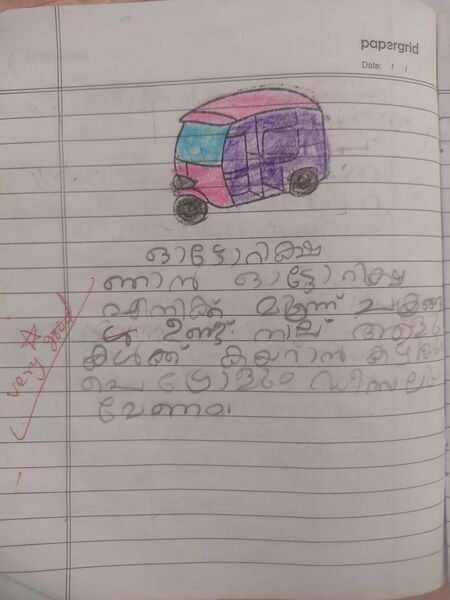 papergrid
Date: / /
ഓട്ടോറിക്ഷ
ഞാൻ ഓട്ടോറിക്ഷ
എനിക്ക് മൂന്ന് ചക്രങ്ങ
ൾ ഉണ്ട് നാല് ആളു
കൾക്ക് കയറാൻ കഴിയും
പെട്രോളും ഡീസലും
വേണം.
very good